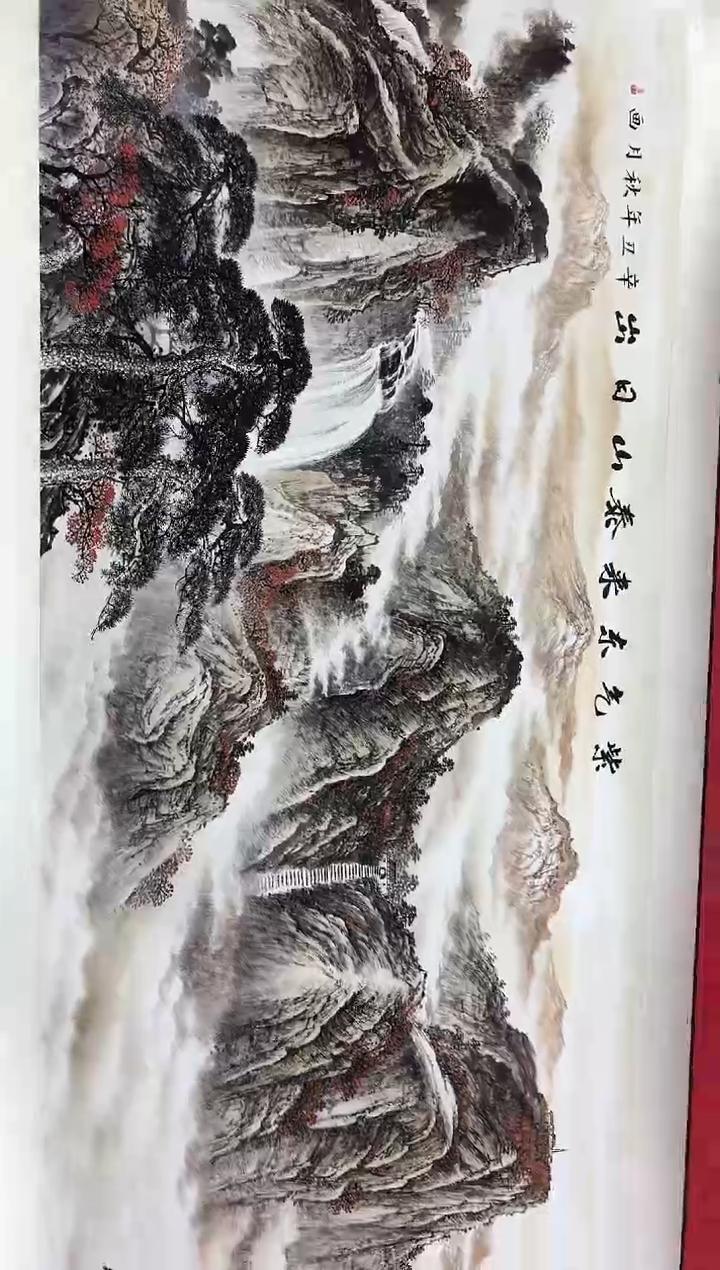 紫气东来泰山日出 辛丑年秋月画